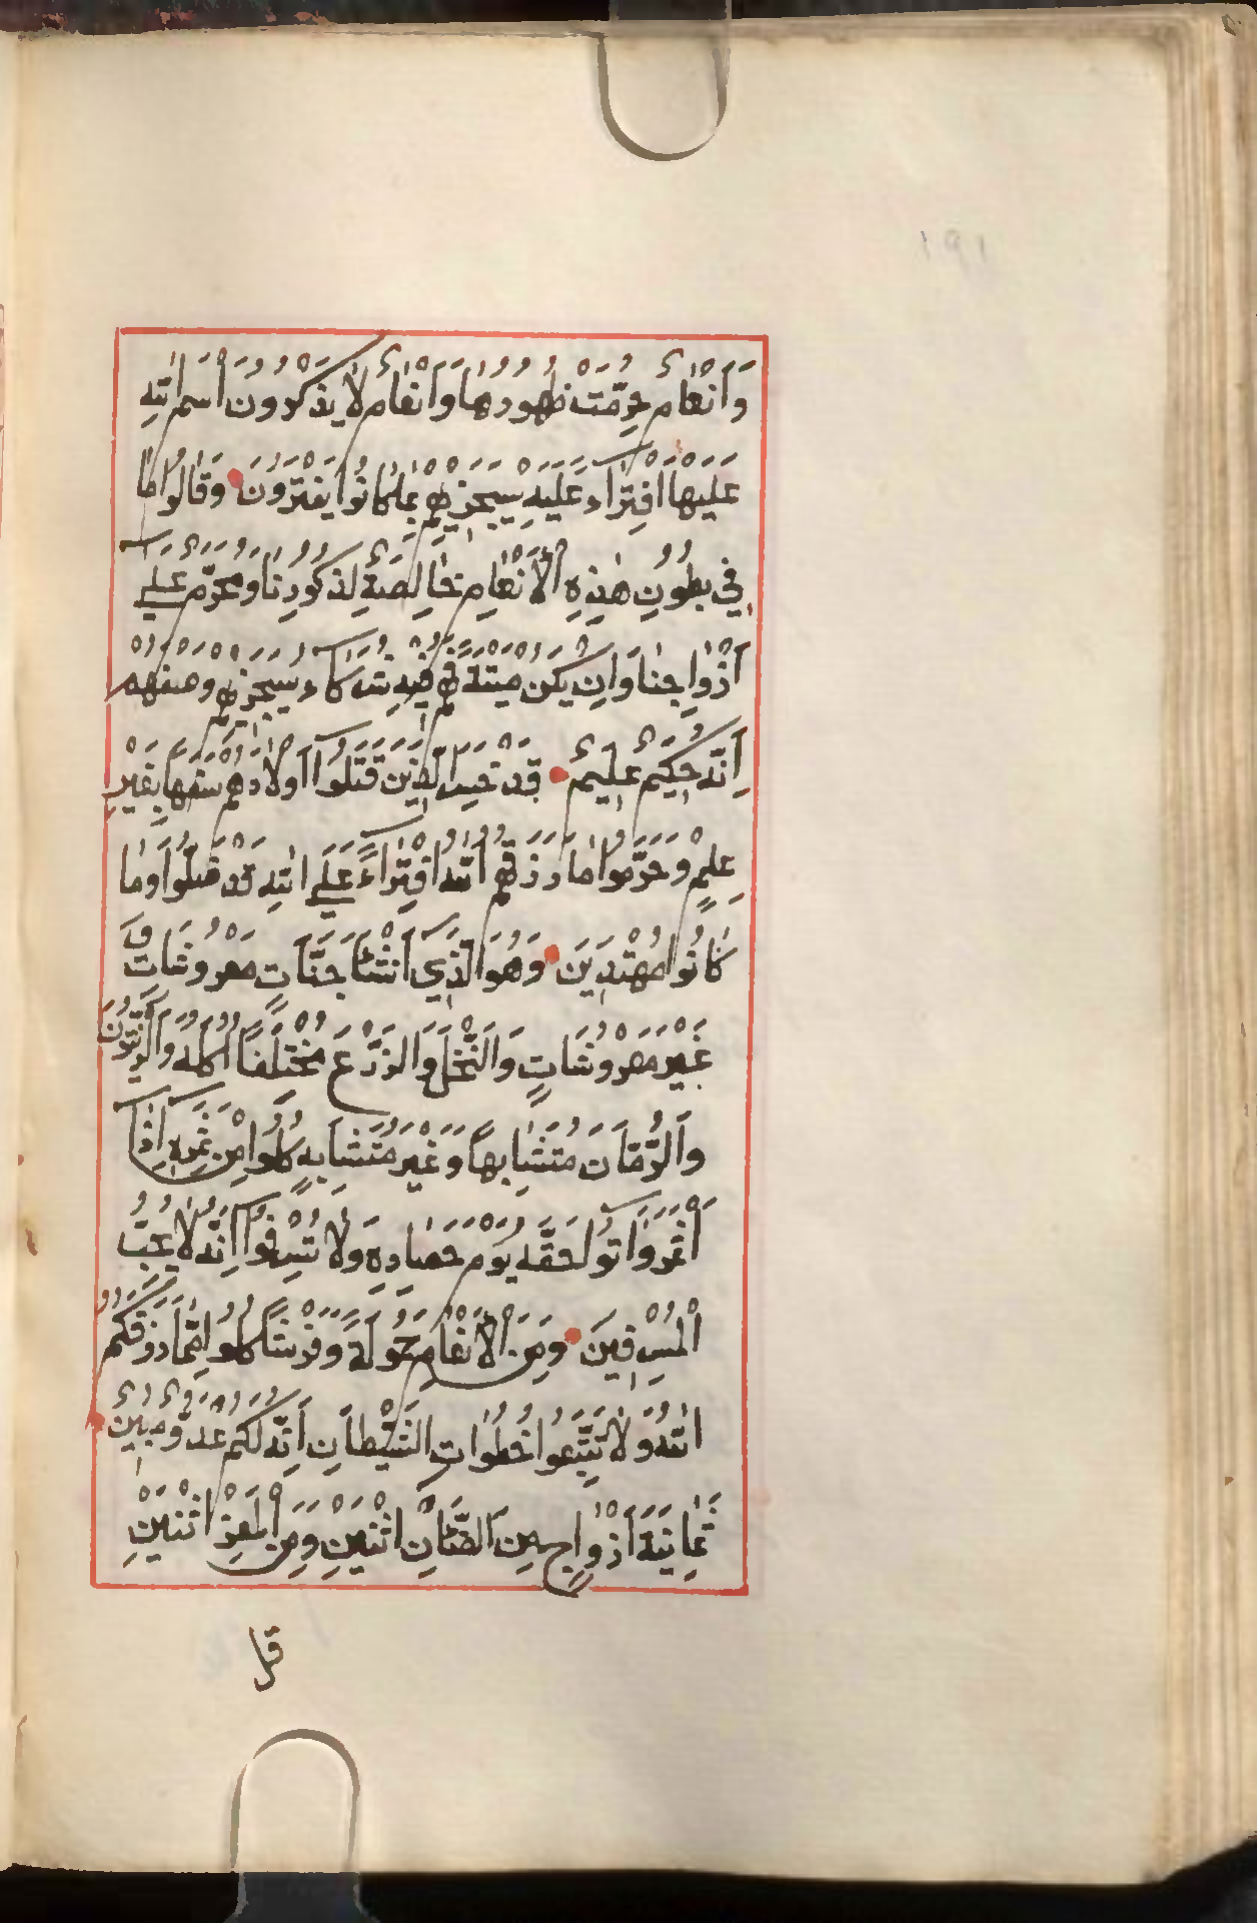 ١٩١
وَأَنْعَامٌ حُرِّمَتْ ظُهُورُهَا وَأَنْعَامٌ لَا يَذْكُرُونَ اسْمَ اللّٰهِ
عَلَيْهَا افْتِرَاءً عَلَيْهِ سَيَجْزِيهِمْ بِمَا كَانُوا يَفْتَرُونَ وَقَالُوا مَا
فِي بُطُونِ هٰذِهِ الْأَنْعَامِ خَالِصَةٌ لِذُكُورِنَا وَمُحَرَّمٌ عَلَى
أَزْوَاجِنَا وَإِنْ يَكُنْ مَيْتَةً فَهُمْ فِيهِ شُرَكَاءُ سَيَجْزِيهِمْ وَصْفَهُمْ
إِنَّهُ حَكِيمٌ عَلِيمٌ قَدْ خَسِرَ الَّذِينَ قَتَلُوا أَوْلَادَهُمْ سَفَهًا بِغَيْرِ
عِلْمٍ وَحَرَّمُوا مَا رَزَقَهُمُ اللّٰهُ افْتِرَاءً عَلَى اللّٰهِ قَدْ ضَلُّوا وَمَا
كَانُوا مُهْتَدِينَ وَهُوَ الَّذِي أَنْشَأَ جَنَّاتٍ مَعْرُوشَاتٍ وَ
غَيْرَ مَعْرُوشَاتٍ وَالنَّخْلَ وَالزَّرْعَ مُخْتَلِفًا أُكُلُهُ وَالزَّيْتُونَ
وَالرُّمَّانَ مُتَشَابِهًا وَغَيْرَ مُتَشَابِهٍ كُلُوا مِنْ ثَمَرِهِ إِذَا
أَثْمَرَ وَآتُوا حَقَّهُ يَوْمَ حَصَادِهِ وَلَا تُسْرِفُوا إِنَّهُ لَا يُحِبُّ
الْمُسْرِفِينَ وَمِنَ الْأَنْعَامِ حَمُولَةً وَفَرْشًا كُلُوا مِمَّا رَزَقَكُمُ
اللّٰهُ وَلَا تَتَّبِعُوا خُطُوَاتِ الشَّيْطَانِ إِنَّهُ لَكُمْ عَدُوٌّ مُبِينٌ
ثَمَانِيَةَ أَزْوَاجٍ مِنَ الضَّأْنِ اثْنَيْنِ وَمِنَ الْمَعْزِ اثْنَيْنِ
قل